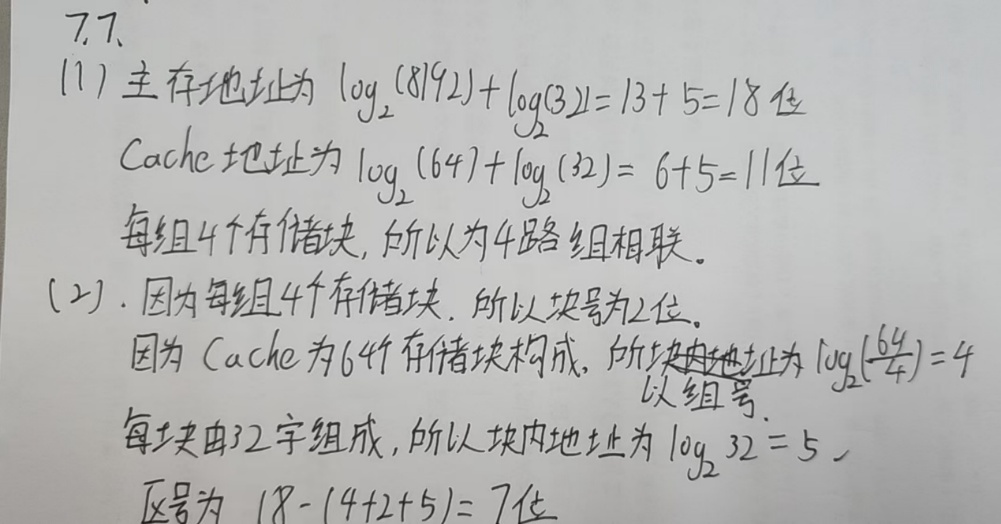 7.7.
(1) 主存地址为 log₂(8192)+log₂(32)=13+5=18位
Cache地址为 log₂(64)+log₂(32)= 6+5=11位
每组4个存储块, 所以为4路组相联。
(2). 因为每组4个存储块. 所以块号为2位。
因为 Cache 为64个存储块构成, 所块内地址为 log₂(64/4)=4
以组号.
每块由32字组成, 所以块内地址为 log₂ 32 = 5、
区号为 18-(4+2+5)= 7位